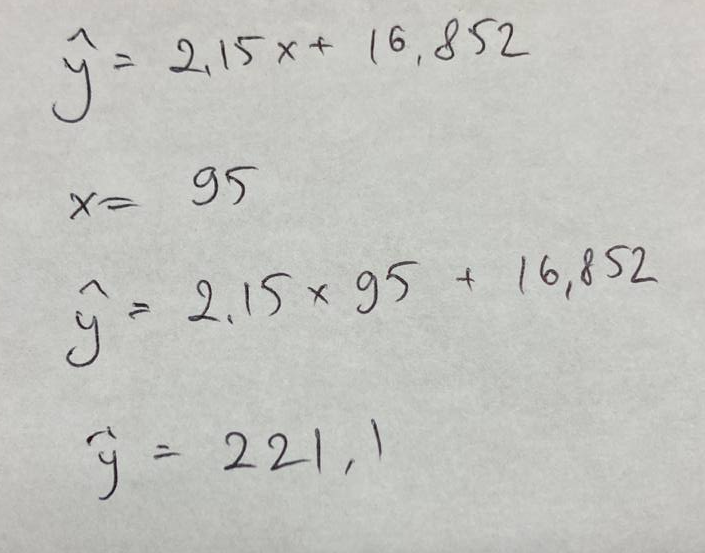 ŷ = 2,15 x + 16,852
x = 95
ŷ = 2.15 × 95 + 16,852
ŷ = 221,1